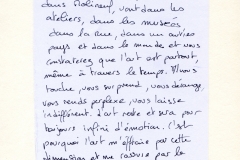 dans Molineuf, vont dans les
ateliers, dans les musées
dans la rue, dans un autre
pays et dans le monde et vous
constaterez que l'art est partout,
même à travers le temps. Il vous
touche, vous surprend, vous dérange,
vous rends perplexe, vous laisse
indifférent. L'art reste et sera pour
toujours infini d'émotion. C'est
pourquoi l'art m'effraie par cette
dimension et me rassure par la